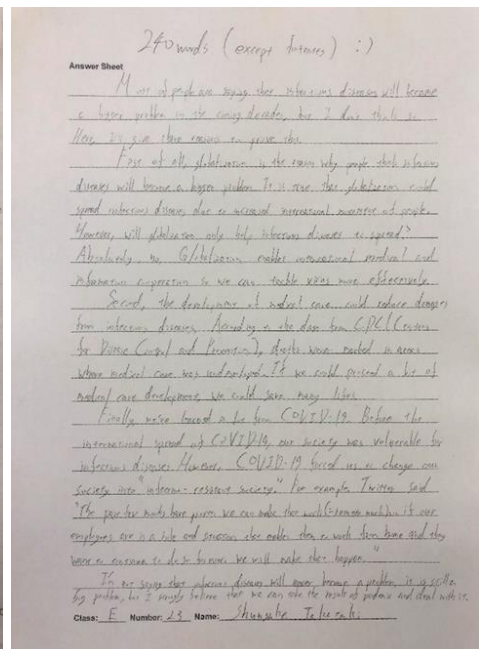 240 words (except                ) :)
Answer Sheet
Most of people are saying that infectious diseases will become
a bigger problem in the coming decades, but I don't think so.
Here, I'll give three reasons to prove this.
First of all, globalization is the reason why people think infectious
diseases will become a bigger problem. It is true that globalization could
spread infectious diseases due to increased international movement of people.
However, will globalization only help infectious diseases to spread?
Absolutely, no. Globalization enables international medical and
information cooperation so we can tackle virus more effectively.
Second, the development of medical care could reduce damages
from infectious diseases. According to the data from CDC (Centers
for Disease Control and Prevention), deaths were marked in areas
where medical care was undeveloped. If we could proceed a bit of
medical care development, we could save many lives.
Finally, we've learned a lot from COVID-19. Before the
international spread of COVID-19, our society was vulnerable for
infectious diseases. However, COVID-19 forced us to change our
society into "        society." For example, Twitter said
"The past few months have proven we can make that work          if our
employees are in a role and situation that enables them to work from home and they
want to continue to do so forever we will make that happen."
I'm not saying that infectious diseases will never become a problem, it is still a
big problem, but I              believe that we can               and deal with it.
Class: E Number: 23 Name: